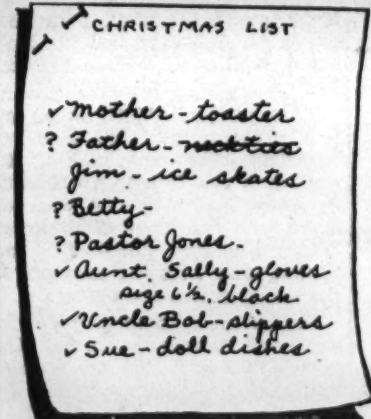 CHRISTMAS LIST
✓ Mother - toaster
? Father - neckties
Jim - ice skates
? Betty -
? Pastor Jones -
✓ Aunt Sally - gloves
size 6½, black
✓ Uncle Bob - slippers
✓ Sue - doll dishes